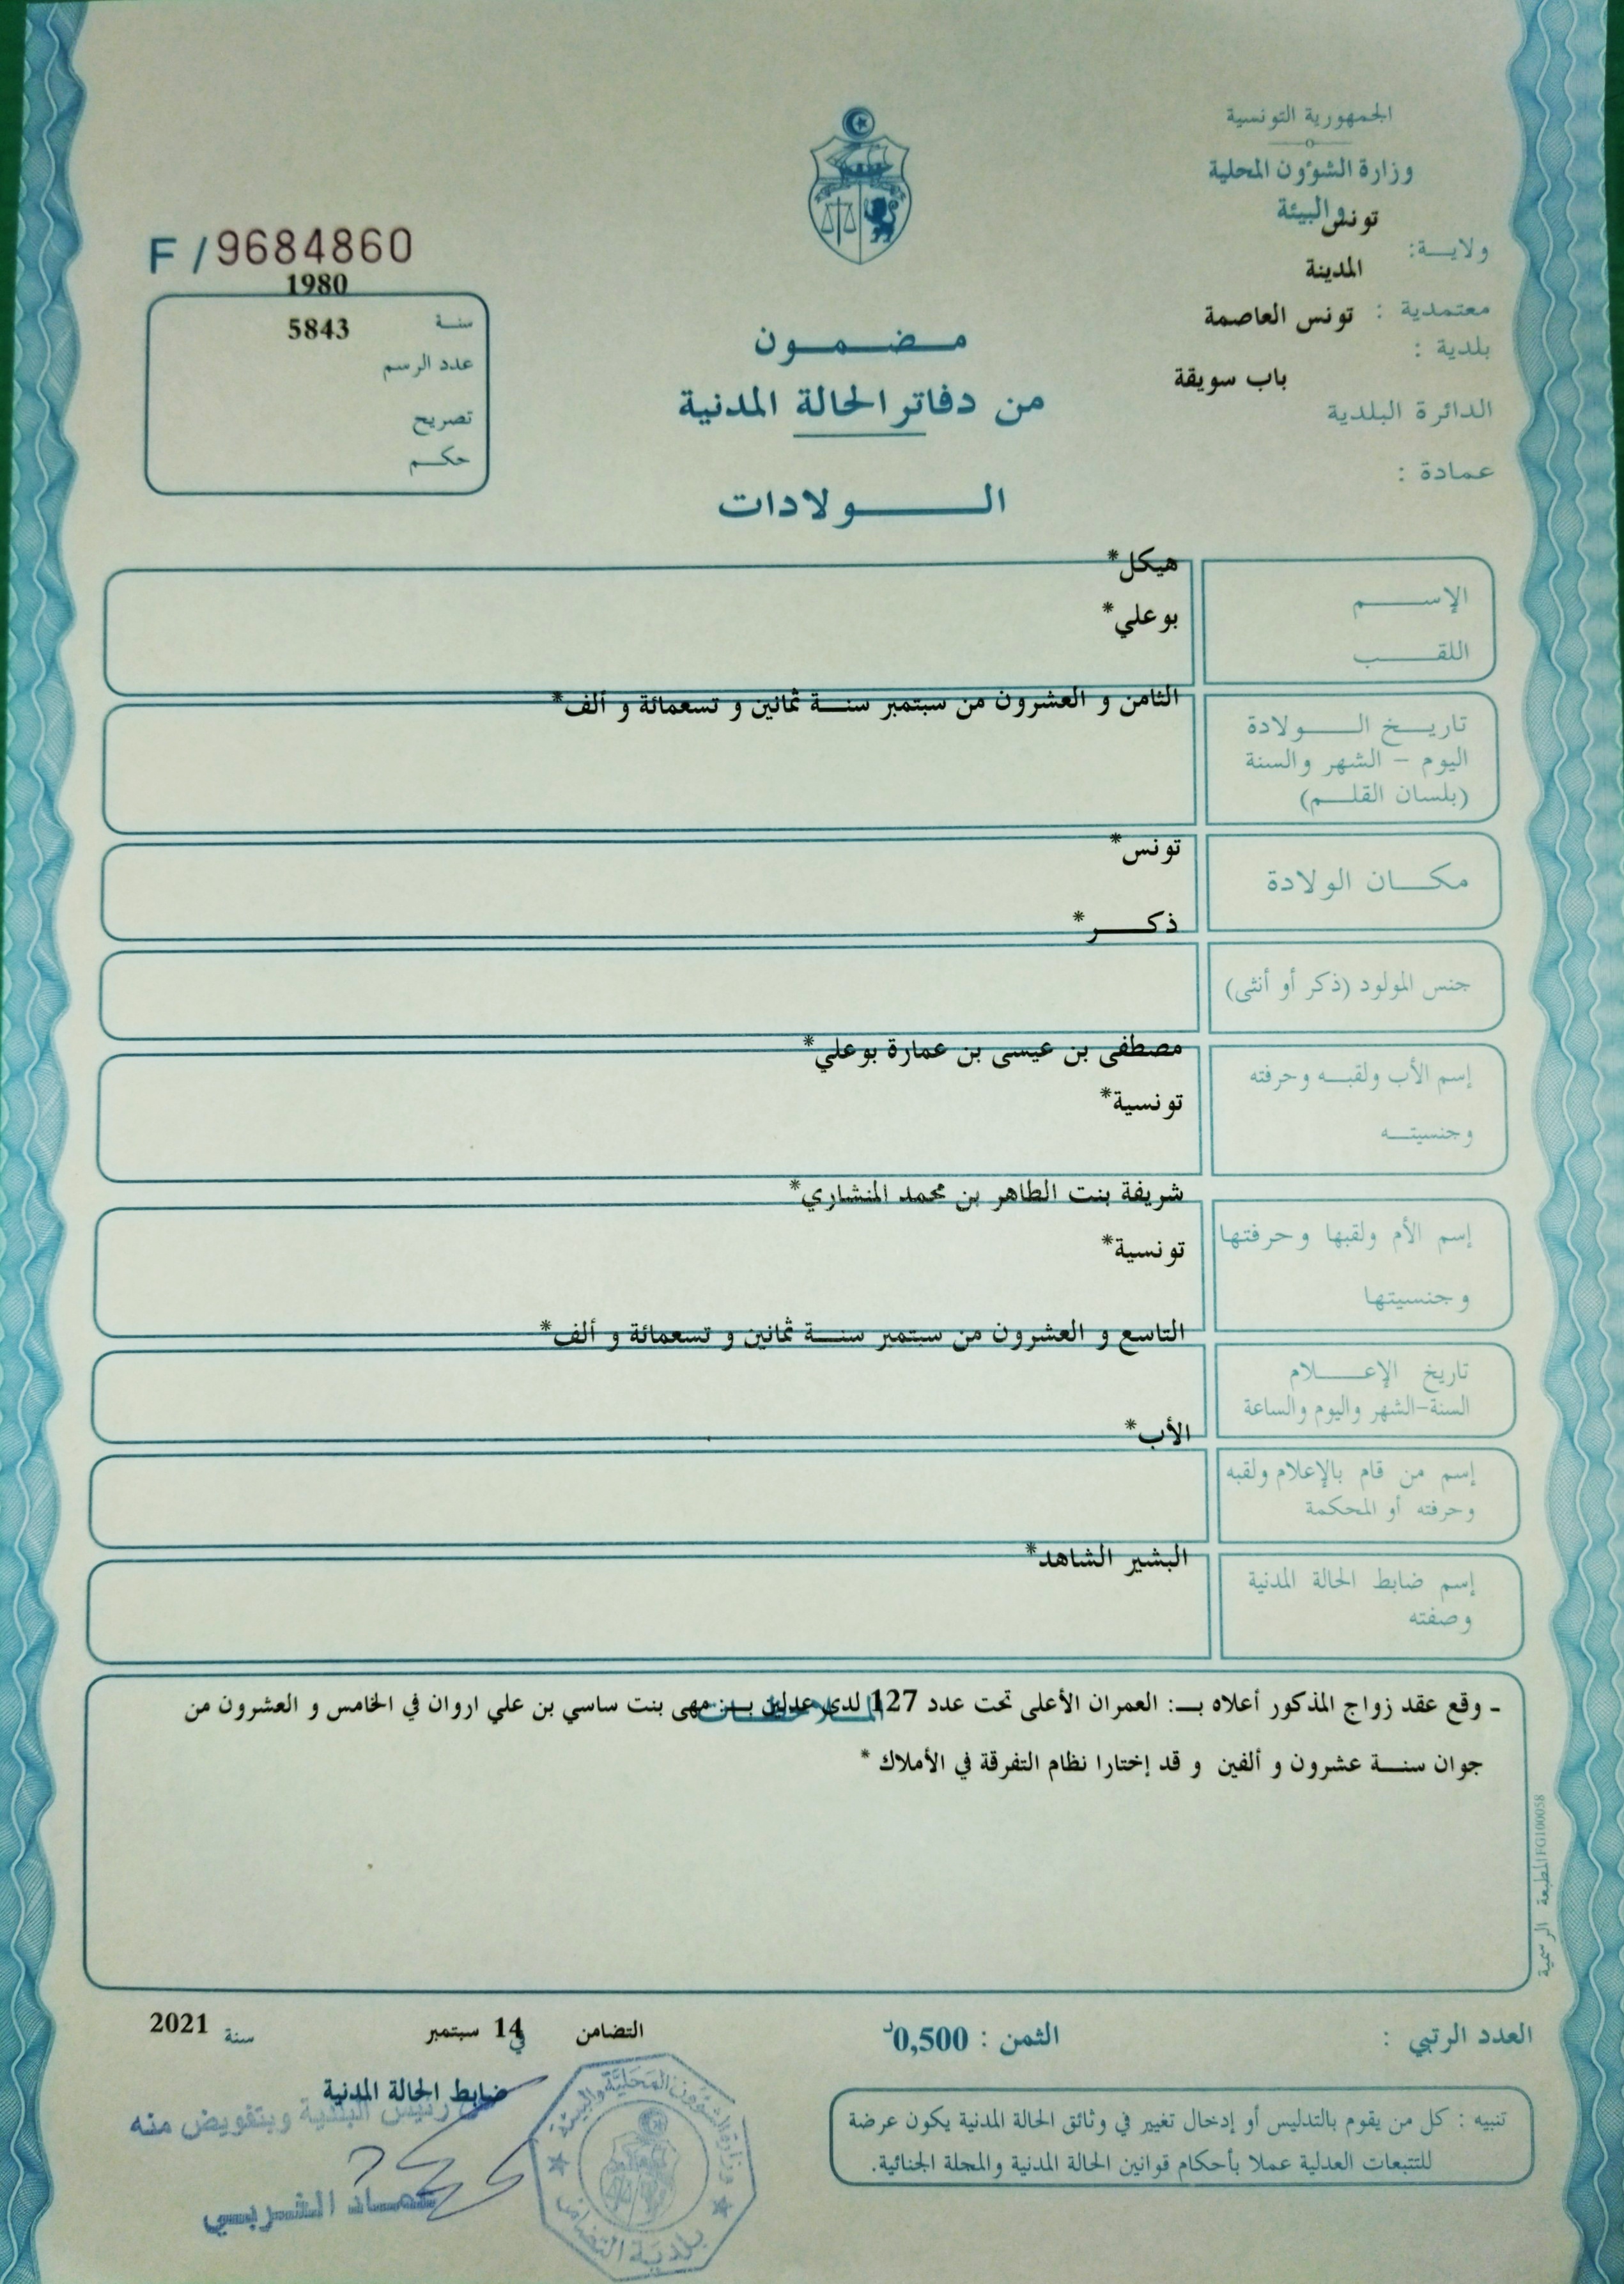 الجمهورية التونسية
وزارة الشؤون المحلية
والبيئة
ولايــة: تونس
معتمدية : المدينة
بلدية : تونس العاصمة
الدائرة البلدية باب سويقة
عمادة :
F / 9684860
سنة 1980
عدد الرسم 5843
تصريح
حكم
مضمون
من دفاتر الحالة المدنية
الولادات
الإسم هيكل*
اللقب بوعلي*
تاريخ الولادة الثامن و العشرون من سبتمبر سنة ثمانين و تسعمائة و ألف*
اليوم - الشهر والسنة
(بلسان القلم)
مكان الولادة تونس*
جنس المولود (ذكر أو أنثى) ذكر*
إسم الأب ولقبه وحرفته مصطفى بن عيسى بن عمارة بوعلي*
وجنسيته تونسية*
إسم الأم ولقبها وحرفتها شريفة بنت الطاهر بن محمد المنشاري*
وجنسيتها تونسية*
تاريخ الإعلام التاسع و العشرون من سبتمبر سنة ثمانين و تسعمائة و ألف*
السنة-الشهر واليوم والساعة
إسم من قام بالإعلام ولقبه الأب*
وحرفته أو المحكمة
إسم ضابط الحالة المدنية البشير الشاهد*
وصفته
- وقع عقد زواج المذكور أعلاه بـ: العمران الأعلى تحت عدد 127 لدى عدلين بـ: مهى بنت ساسي بن علي اروان في الخامس و العشرون من
جوان سنة عشرون و ألفين و قد إختارا نظام التفرقة في الأملاك *
المطبعة الرسمية FG100058
العدد الرتبي :
الثمن : 0,500د
التضامن في 14 سبتمبر سنة 2021
ضابط الحالة المدنية
رئيس البلدية وبتفويض منه
عماد الشربي
وزارة الشؤون المحلية والبيئة
بلدية التضامن
تنبيه : كل من يقوم بالتدليس أو إدخال تغيير في وثائق الحالة المدنية يكون عرضة
للتتبعات العدلية عملا بأحكام قوانين الحالة المدنية والمجلة الجنائية.